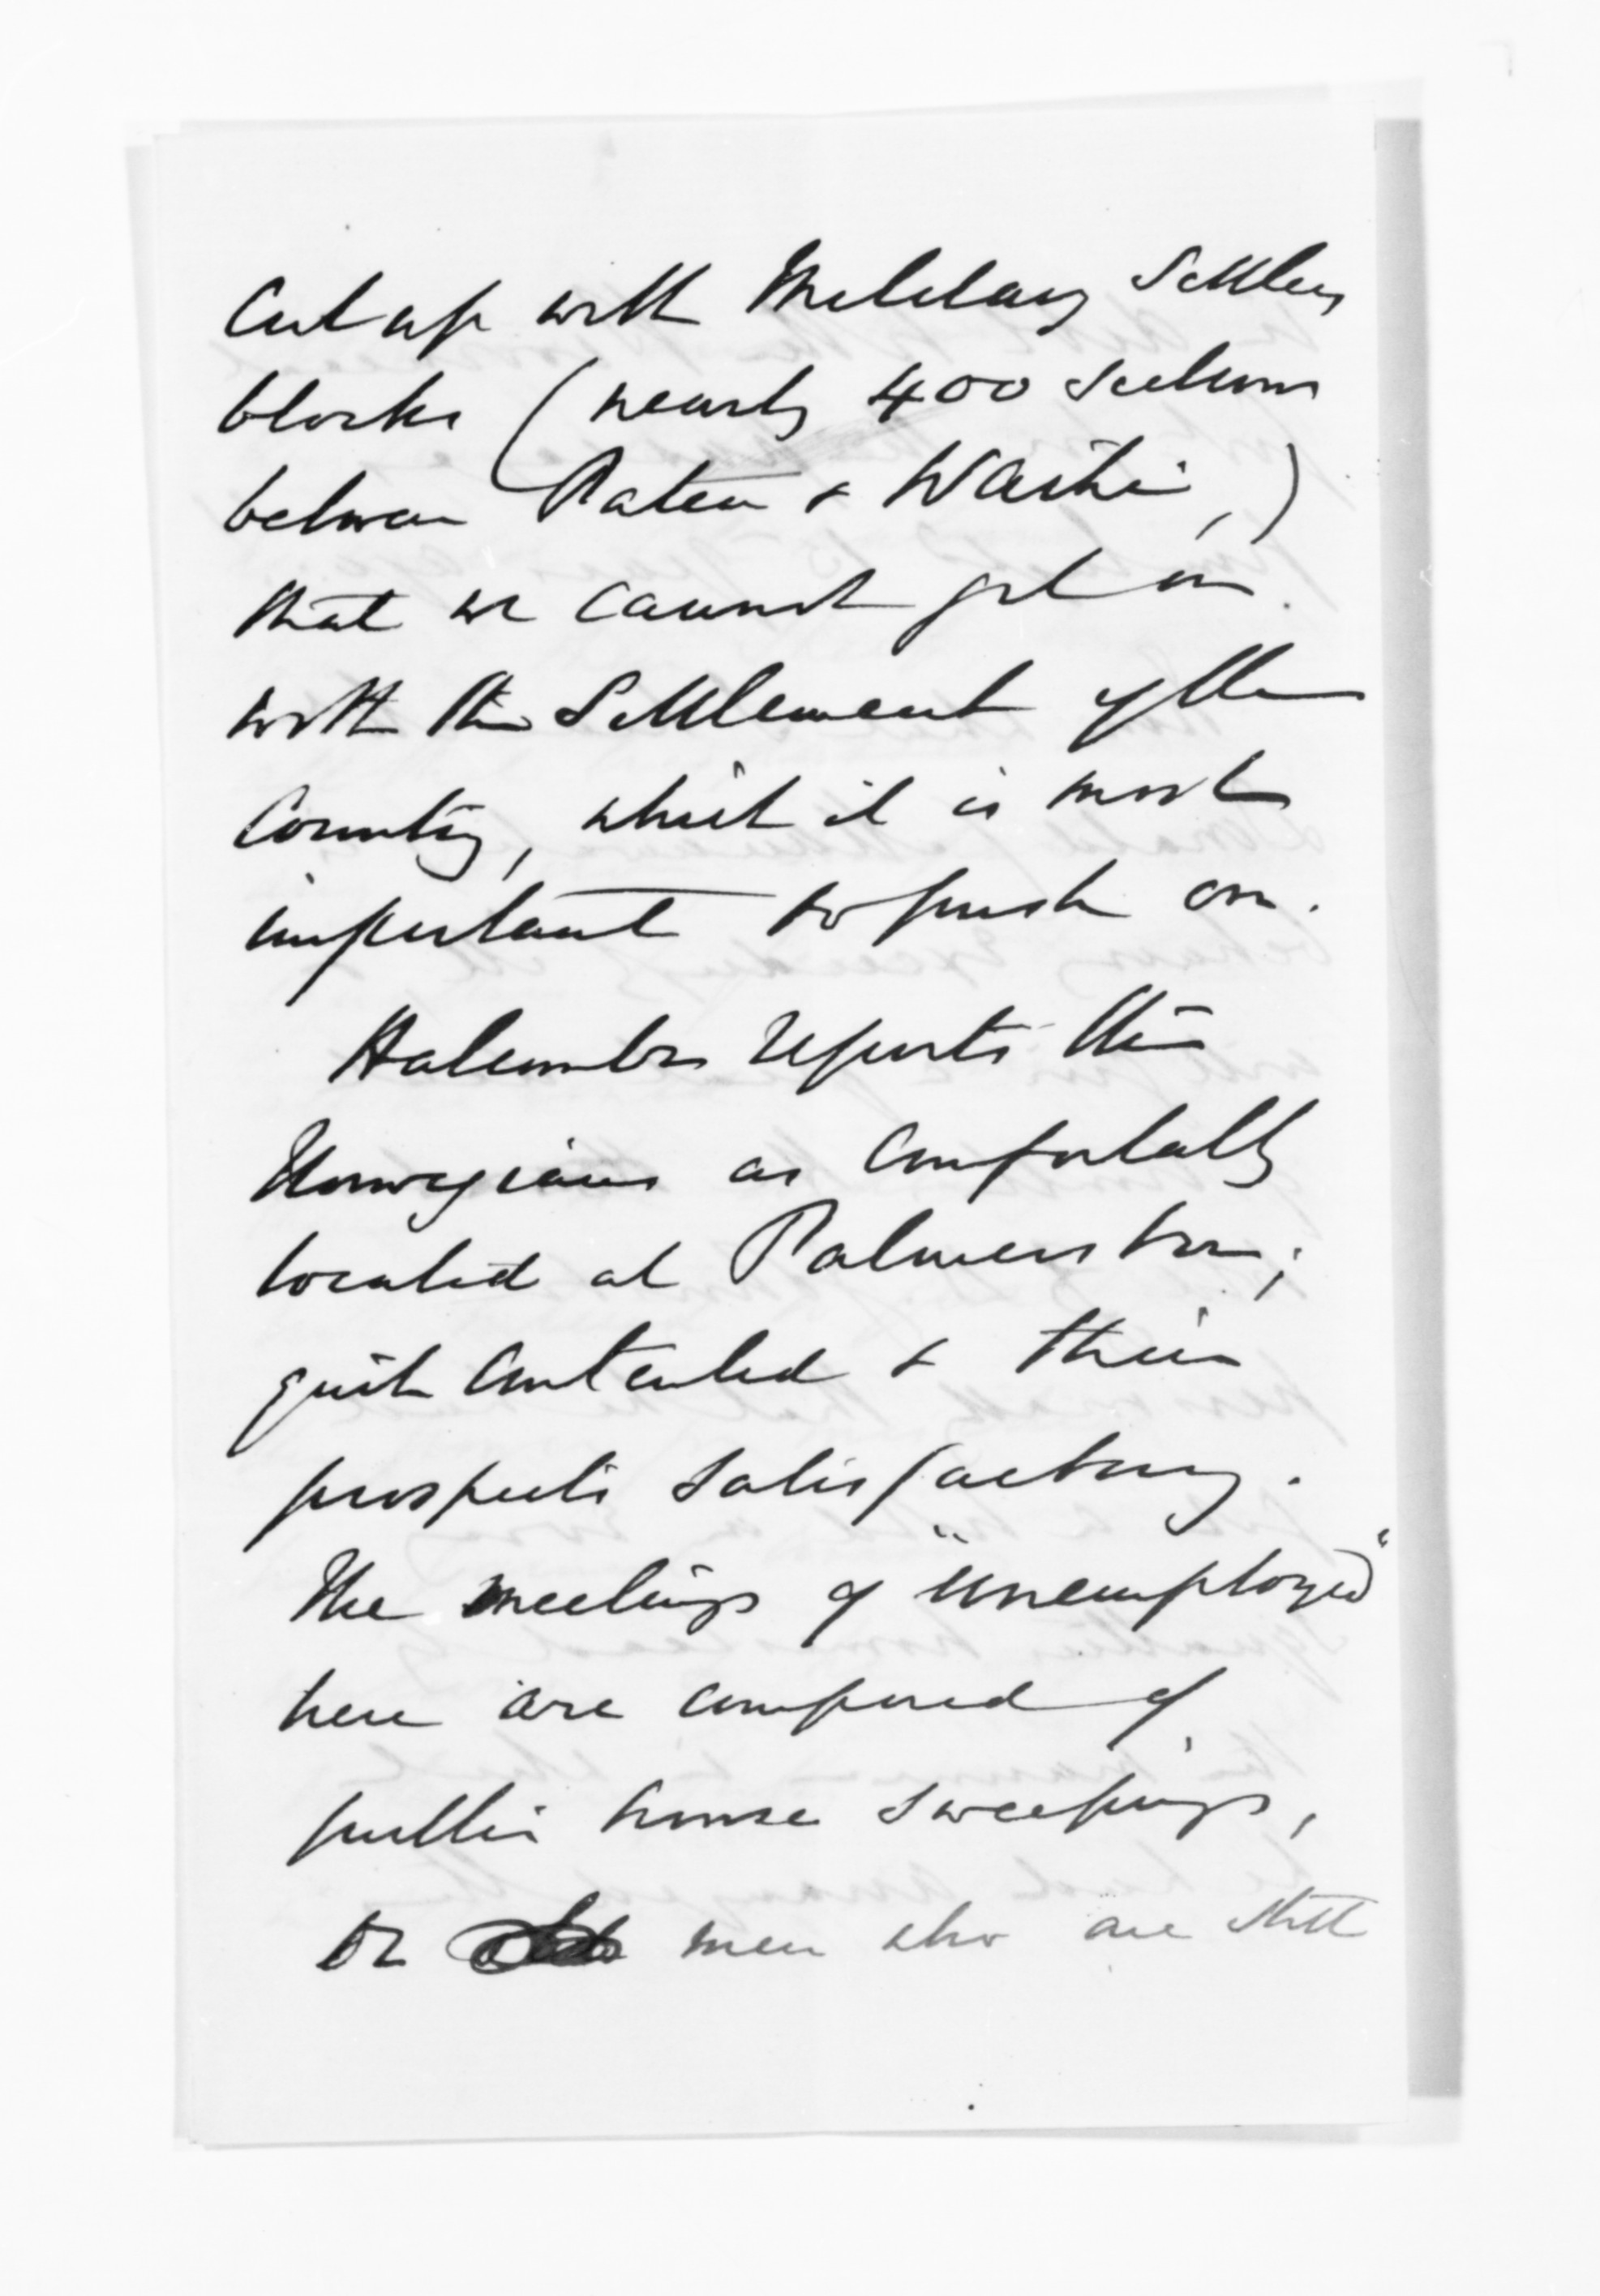 Cut up with Military Settlers
blocks (nearly 400 sections
between Patea & Waihi,)
that we cannot get on
with the Settlement of the
Country, which it is most
important to push on.
Halcombe reports the
Norwegians as comfortably
located at Palmerston;
quite contented & their
prospects satisfactory.
The meetings of "unemployed"
here are composed of
public house sweepings,
or men who are still